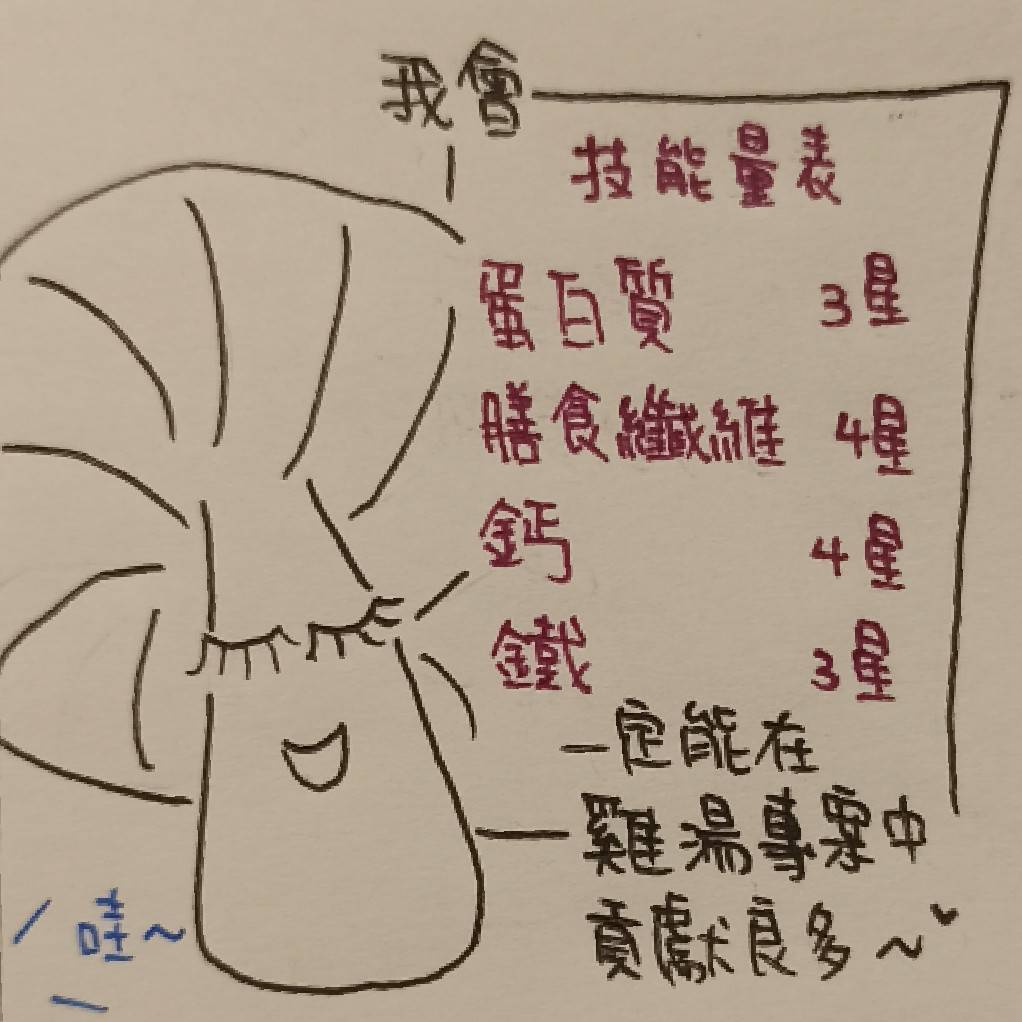 我會
技能量表
蛋白質 3星
膳食纖維 4星
鈣 4星
鐵 3星
一定能在
雞湯專案中
貢獻良多~
哇~